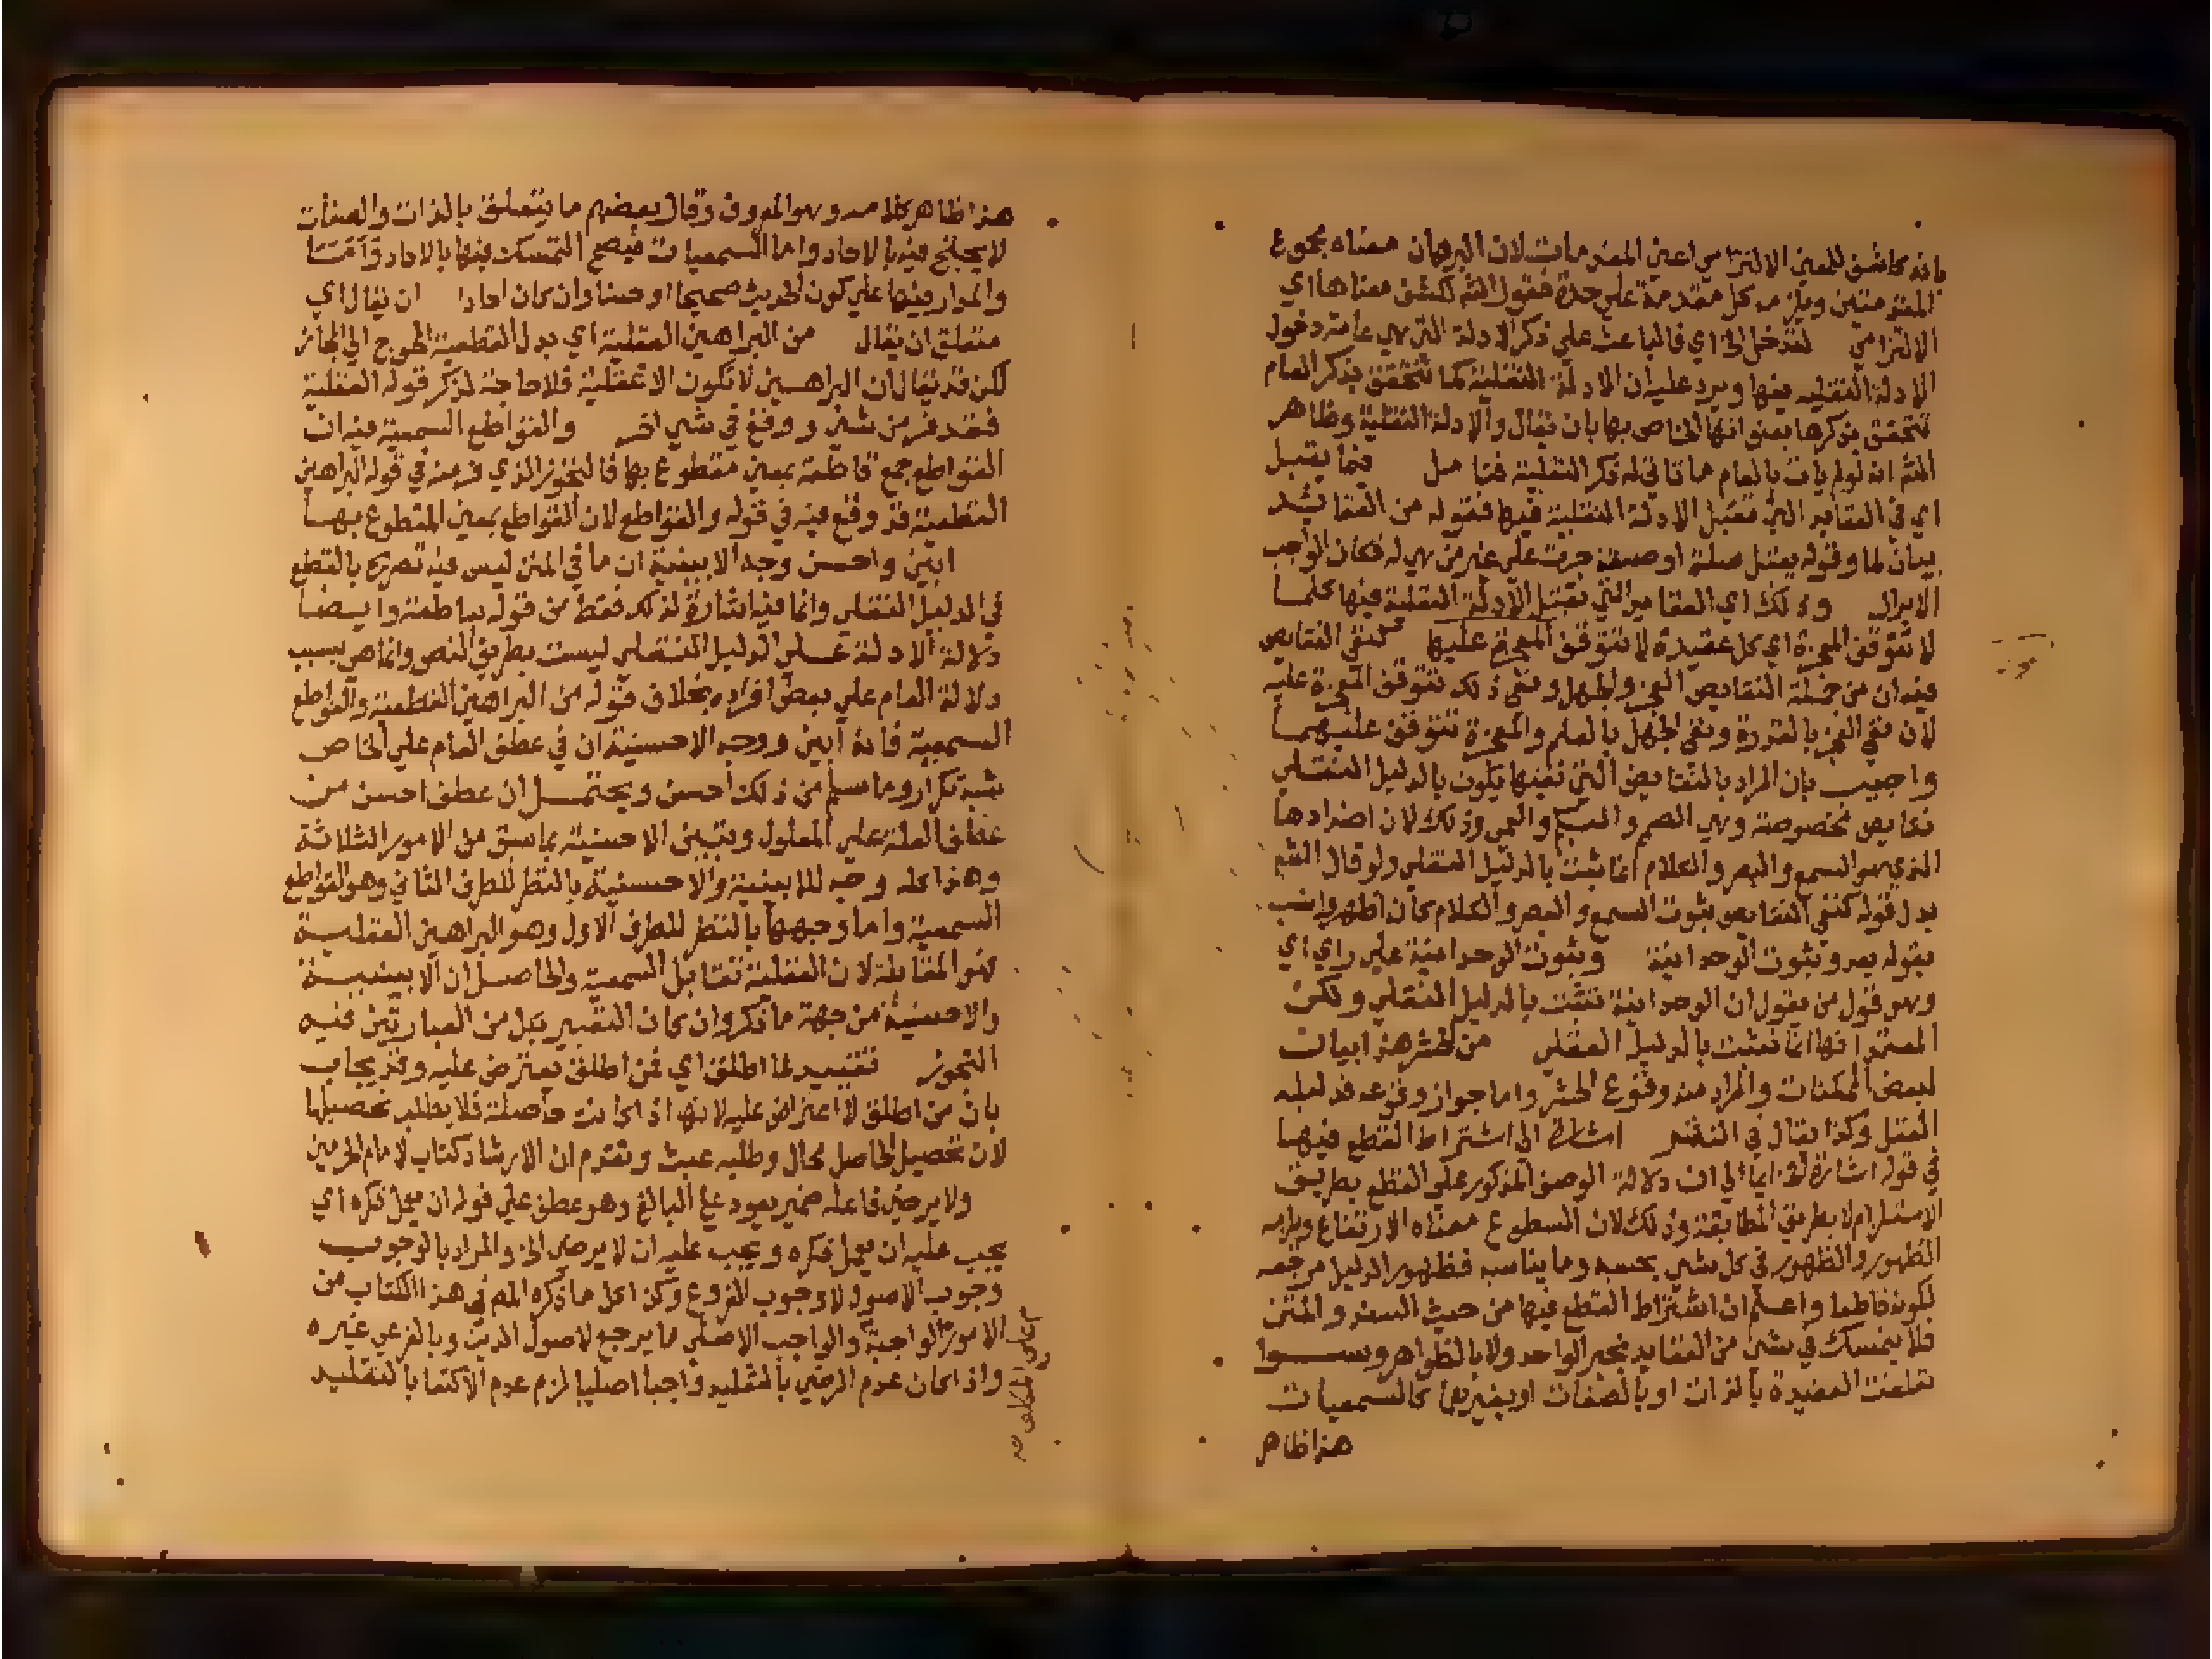 بانه كاشف للمعنى الالتزامي اعني المقدمات لان البرهان معناه مجموع
المقدمتين ويلزمه كل مقدمة على حدة فقول الشم لكشف معناها اي
الالتزامي لتدخل الخ اي فالباعث على ذكر الادلة التي هي عامة دخول
الادلة النقلية فيها ويرد عليه ان الادلة النقلية كما تتحقق بذكر العام
تتحقق بذكرها بعنوانها الخاص بها بان يقال والادلة النقلية وظاهر
الشم انه لو لم يات بالعام ما تاتى له ذكر النقلية فتامل فيما يقبل
اي في العقايد التي تقبل الادلة النقلية فيها فقوله من العقائد
بيان لما وقوله يقبل صلة او صفة جرت على غير من هي له فكان الواجب
الابراز وذلك اي العقايد التي تقبل الادلة النقلية فيها كلما
لا تتوقف المعجزة اي كل عقيدة لا تتوقف المعجزة عليها كنفي النقايص
فيه ان من جملة النقايص العجز والجهل ونفي ذلك تتوقف المعجزة عليه
لان نفي العجز بالقدرة ونفي الجهل بالعلم والمعجزة تتوقف عليهما
واجيب بان المراد بالنقايص التي نفيها يكون بالدليل النقلي
نقايص مخصوصة وهي الصمم والبكم والعمى وذلك لان اضدادها
الذي هو السمع والبصر والكلام انما يثبت بالدليل النقلي ولو قال الشم
بدل قوله كنفي النقايص بثبوت السمع والبصر والكلام كان اظهر وانسب
بقوله بعد وبثبوت الوحدانية وبثبوت الوحدانية على راي اي
وهو قول من يقول ان الوحدانية تثبت بالدليل النقلي ولكن
المعتمد انها انما تثبت بالدليل العقلي من الحشر هذا بيان
لبعض الممكنات والمراد منه وقوع الحشر واما جواز وقوعه فدليله
العقل وكذا يقال في اشارة الى اشتراط القطع فيها
في قوله اشارة ايما الى ان دلالة الوصف المذكور على القطع بطريق
الاستلزام لا بطريق المطابقة وذلك لان السطوع معناه الارتفاع ويلزمه
الظهور والظهور في كل شي بحسبه وما يناسبه فظهور الدليل مرجعه
لكونه قاطعا واعلم ان اشتراط القطع فيها من حيث السند والمتن
فلا يتمسك في شي من العقايد بخبر الواحد ولا بالظواهر وسوا
تعلقت العقيدة بالذات او بالصفات او بغيرها كالسمعيات
هذا ظاهر
هذا ظاهر كلامه وهو المعروف وقال بعضهم ما يتعلق بالذات والصفات
لا يحتج فيه بالاحاد واما السمعيات فيصح التمسك فيها بالاحاد
والمدار فيها على كون الحديث صحيحا او حسنا وان كان احادا ان يقال اي
متعلق ان يقال من البراهين العقلية اي بدل القطعية المحوج الى المجاز
لكن قد يقال ان البراهين لا تكون الا عقلية فلا حاجة لذكر قوله العقلية
فقد فر من شي ووقع في شي اخر والقواطع السمعية فيه ان
القواطع جمع قاطعة بمعنى مقطوع بها فالتجوز الذي فر منه في قوله البراهين
القطعية قد وقع فيه في قوله والقواطع لان القواطع بمعنى المقطوع بها
ابين واحسن وجه الابينية ان ما في المتن ليس فيه تصريح بالقطع
في الدليل النقلي وانما فيه اشارة لذلك فقط من قوله ساطعة وايضا
دلالة الادلة على الدليل النقلي ليست بطريق النص وانما هي بسبب
دلالة العام على بعض افراده بخلاف قوله من البراهين القطعية والقواطع
السمعية فانه ابين ووجه الاحسنية ان في عطف العام على الخاص
شبه تكرار وما سلم من ذلك احسن ويحتمل ان عطف احسن من
عطف العلة على المعلول وتبين الاحسنية بما سبق من الامور الثلاثة
وهذا كله وجه للابينية والاحسنية بالنظر للطرف الثاني وهو القواطع
السمعية واما وجهها بالنظر للطرف الاول وهو البراهين العقلية
فهو المقابلة لان العقلية تقابل السمعية والحاصل ان الابينية
والاحسنية من جهة ما ذكر وان كان التعبير بكل من العبارتين فيه
التجوز تقييد لما اطلق اي فمن اطلق يعترض عليه وقد يجاب
بان من اطلق لا اعتراض عليه لانها اذا كانت حاصلة فلا يطلب تحصيلها
لان تحصيل الحاصل محال وطلبه عبث وتقدم ان الارشاد كتاب لامام الحرمين
ولا يرضى فاعله ضمير يعود على البالغ وهو عطف على قوله ان يعمل فكره اي
يجب عليه ان يعمل فكره ويجب عليه ان لا يرضى الخ والمراد بالوجوب
وجوب الاصول لا وجوب الفروع وكذا كل ما ذكره المم في هذا الكتاب من
الامور الواجبة والواجب الاصلي ما يرجع لاصول الدين وبالفرعي غيره
واذا كان عدم الرضى بالتقليد واجبا اصليا لزم عدم الاكتفا بالتقليد